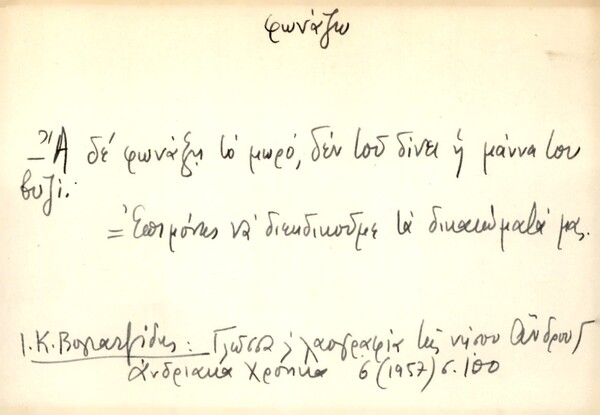 φωνάζω
– Ἄ δέ φωνάξῃ τό μωρό, δέν τοῦ δίνει ἡ μάννα του
βυζί.
= Ἐπιμόνως νά διεκδικοῦμε τά δικαιώματά μας.
Ι. Κ. Βογιατζίδης: Γλῶσσα & λαογραφία τῆς νήσου Ἄνδρου
Ἀνδριακά Χρονικά 6 (1957) σ. 100